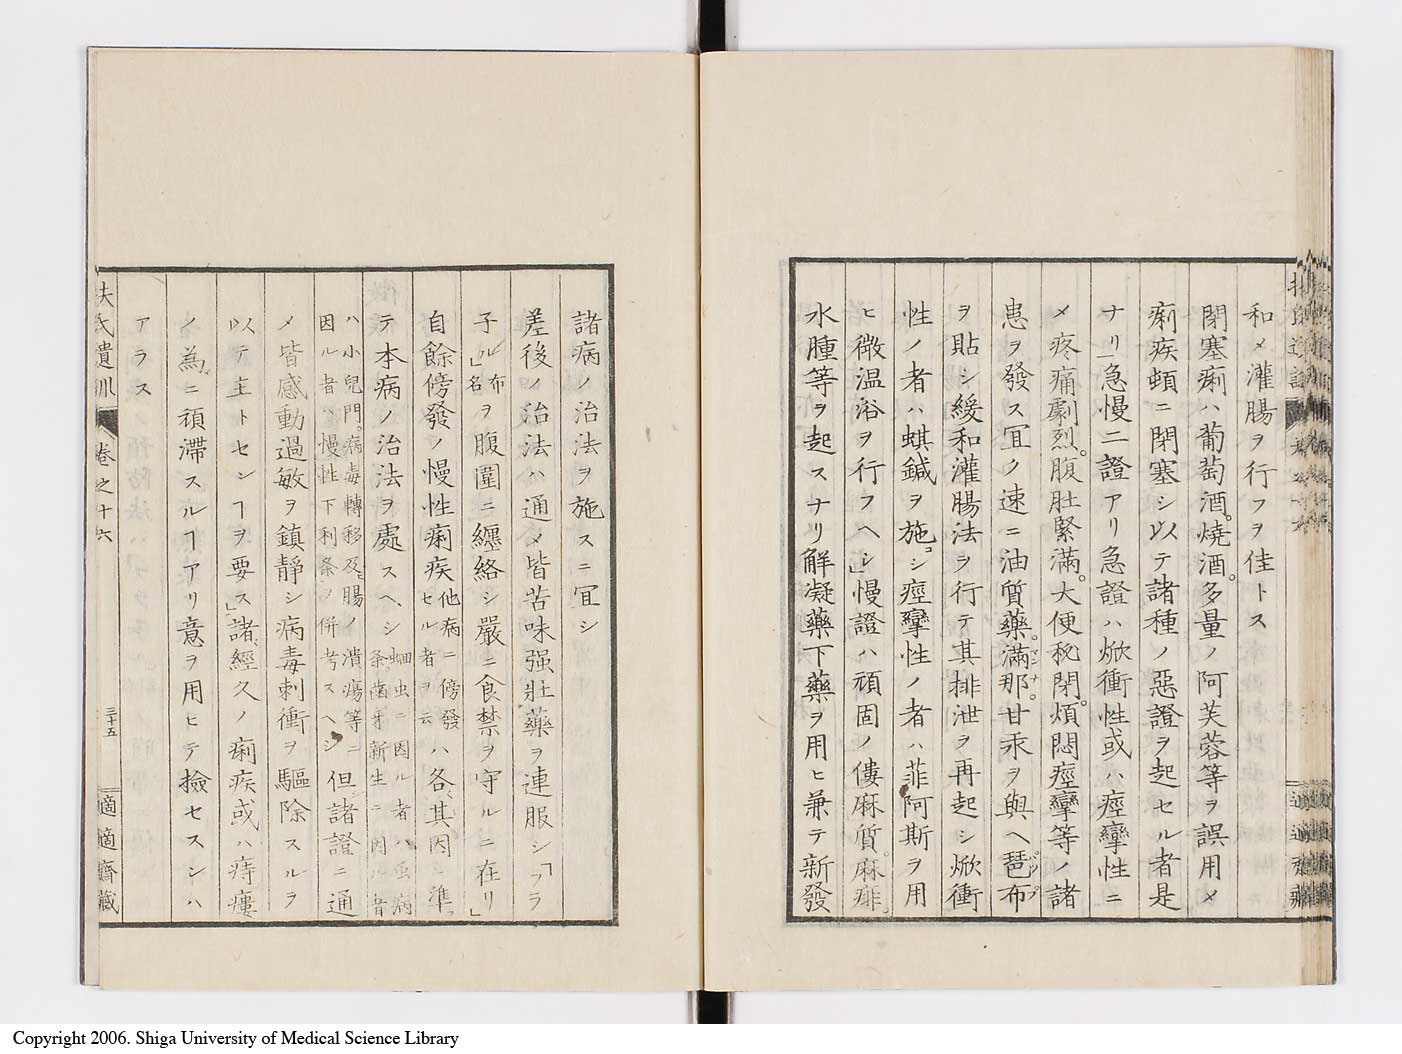 和メ灌腸ヲ行フヲ佳トス
閉塞痢ハ葡萄酒。燒酒。多量ノ阿芙蓉等ヲ誤用メ
痢疾頓ニ閉塞シ以テ諸種ノ惡證ヲ起セル者是
ナリ」急慢二證アリ急證ハ焮衝性或ハ痙攣性ニ
メ疼痛劇烈。腹肚緊滿。大便秘閉。煩悶痙攣等ノ諸
患ヲ發ス冝ノ速ニ油質藥。滿那。甘汞ヲ與ヘ琶布
ヲ貼シ緩和灌腸法ヲ行テ其排泄ヲ再起シ焮衝
性ノ者ハ蜞鍼ヲ施コシ痙攣性ノ者ハ菲阿斯ヲ用
ヒ微温浴ヲ行フヘシ」慢證ハ頑固ノ僂麻質。麻痱。
水腫等ヲ起スナリ解凝藥下藥ヲ用ヒ兼テ新發
諸病ノ治法ヲ施スニ冝シ
差後ノ治法ハ通メ皆苦味强壯藥ヲ連服シ「フラ
子ル」布名ヲ腹圍ニ纏絡シ嚴ニ食禁ヲ守ルニ在リ」
自餘傍發ノ慢性痢疾他病ニ傍發セル者ヲ云ハ各其因ニ準
テ本病ノ治法ヲ處スヘシ蛔虫ニ因ル者ハ虫病條齒牙新生ニ因ル者
ハ小兒門。病毒轉移及腸ノ潰瘍等ニ因ル者ハ慢性下利條ヲ併考スヘシ但諸證ニ通
メ皆感動過敏ヲ鎮靜シ病毒刺衝ヲ驅除スルヲ
以テ主トセンヿヲ要ス」諸經久ノ痢疾或ハ痔瘻
ノ為ニ頑滯スルヿアリ意ヲ用ヒテ撿セスンハ
アラス
扶氏遺訓 卷之十六
三十五
適適齋藏
Copyright 2006. Shiga University of Medical Science Library